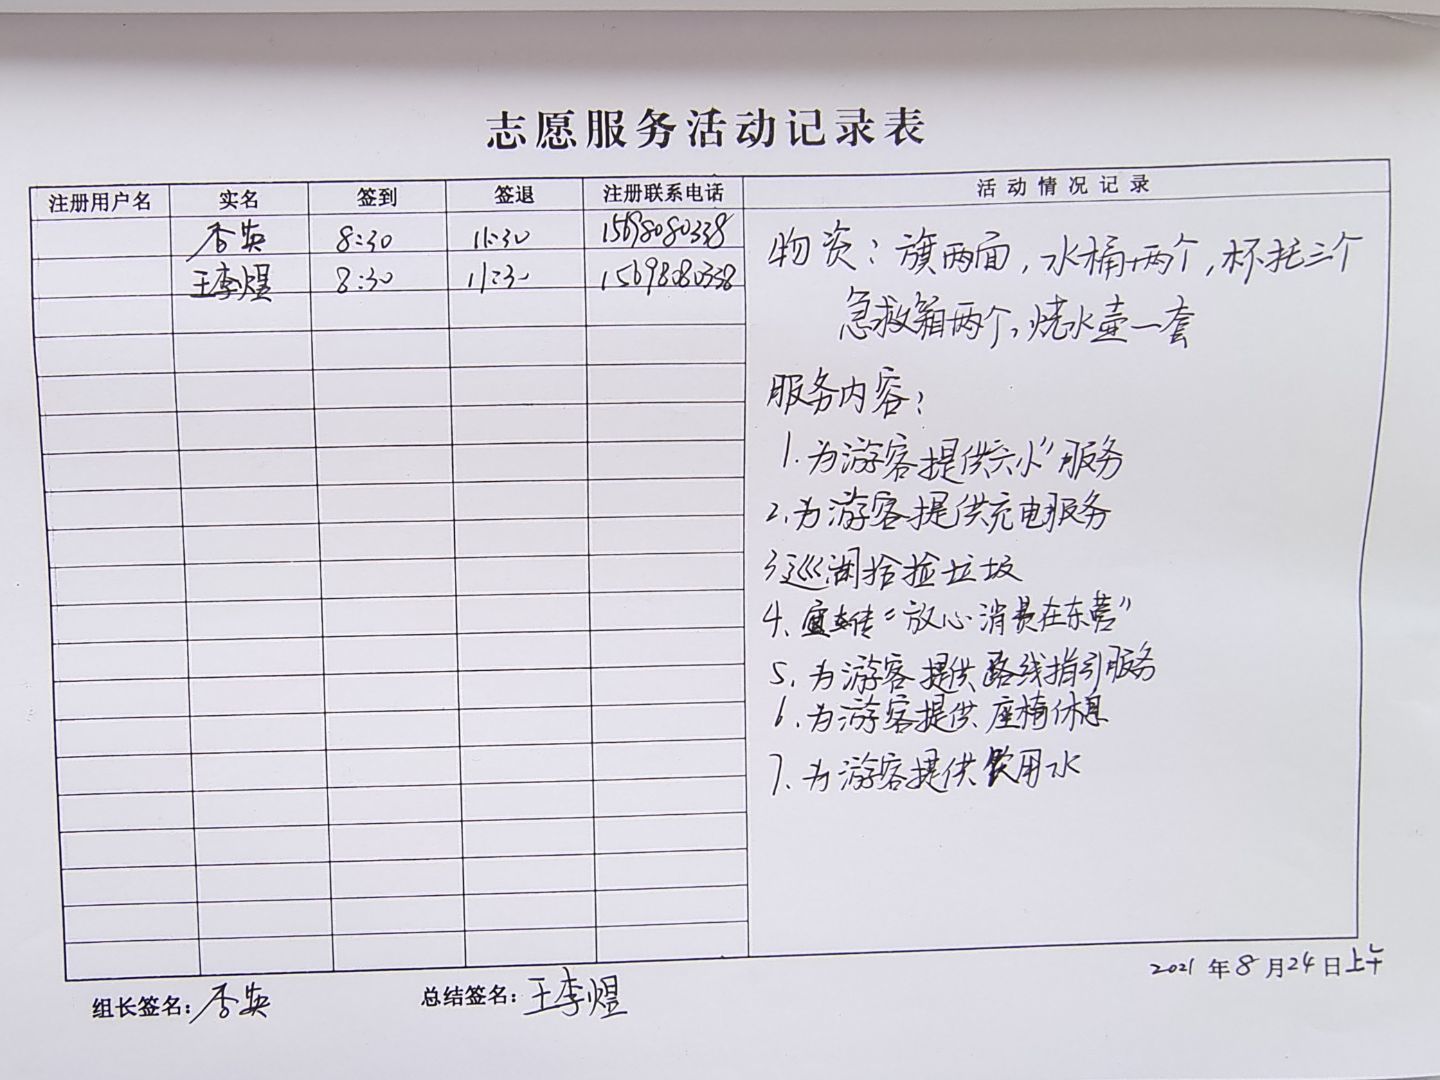 志愿服务活动记录表
注册用户名 实名 签到 签退 注册联系电话 活动情况记录
英 8:30 11:30 15698080338
王李煜 8:30 11:30 15698080338
物资：旗两面，水桶两个，杯托三个
急救箱两个，烧水壶一套
服务内容：
1.为游客提供 服务
2.为游客提供充电服务
3巡湖拾捡垃圾
4、宣传“放心消费在东营”
5.为游客提供路线指引服务
6.为游客提供座椅休息
7.为游客提供饮用水
2021年8月24日上午
组长签名： 英 总结签名：王李煜